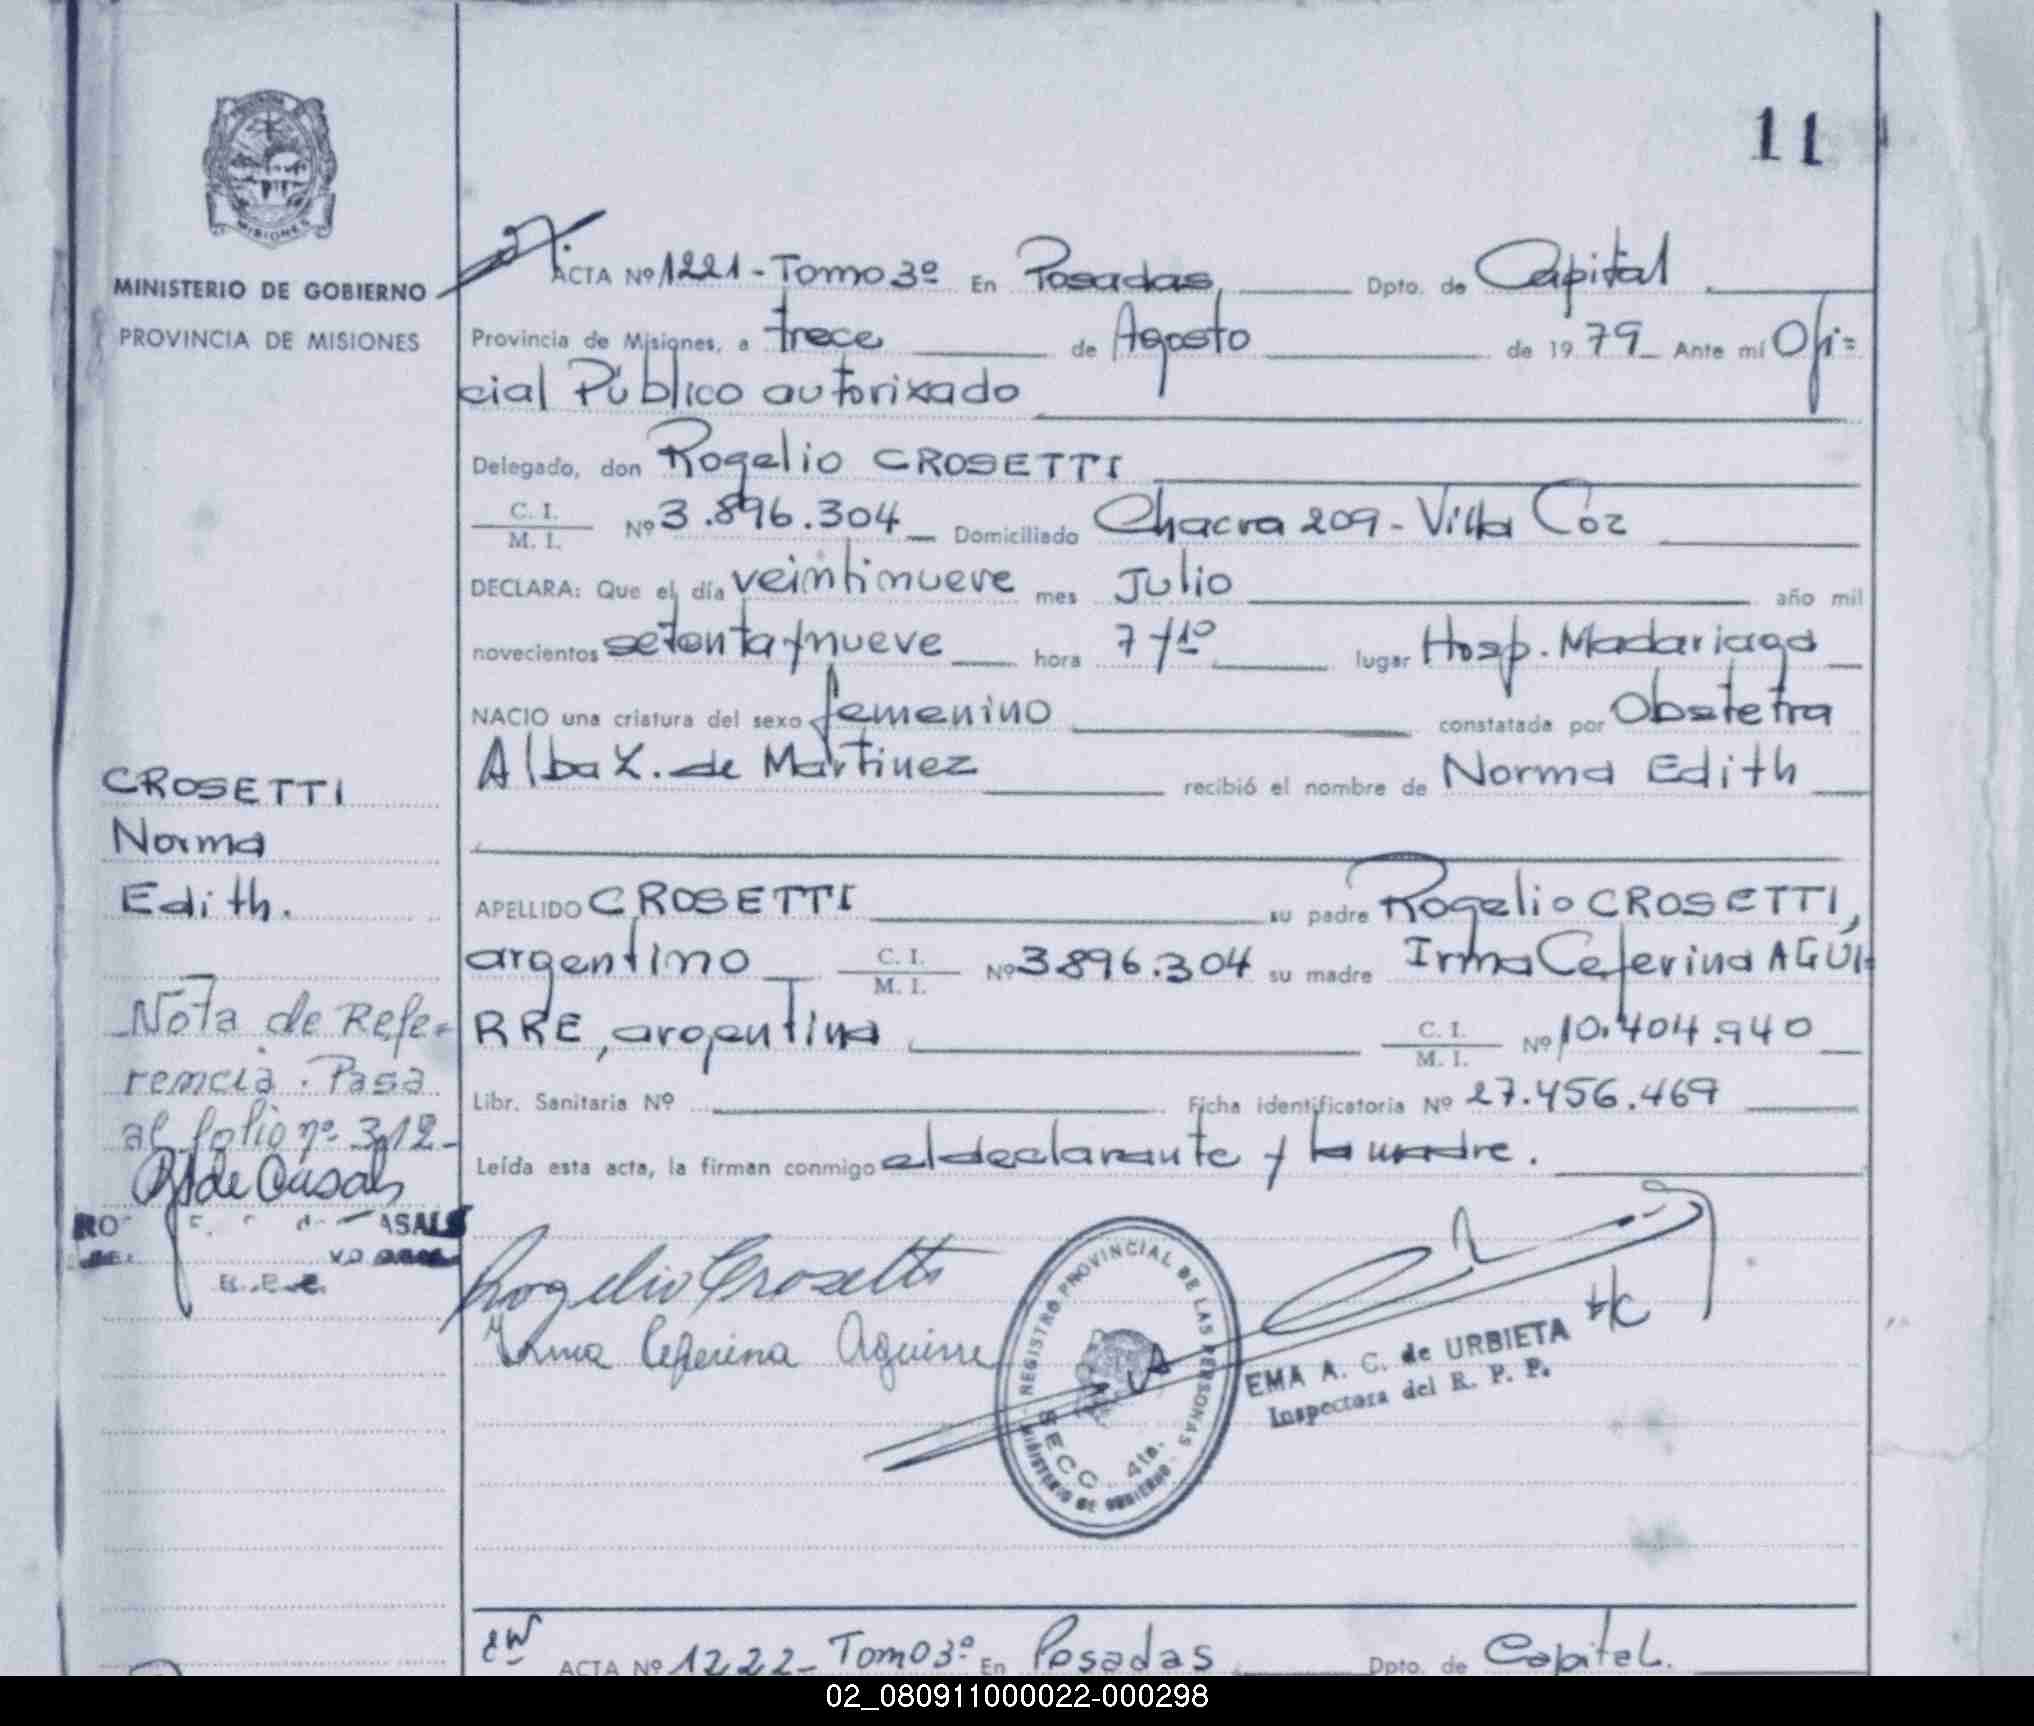 11
MISIONES
MINISTERIO DE GOBIERNO
PROVINCIA DE MISIONES
ACTA Nº 1221 - Tomo 3º En Posadas, Dpto. de Capital
Provincia de Misiones, a trece de Agosto de 1979 Ante mí Ofi=
cial Público autorixado
Delegado, don Rogelio CROSETTI
C. I.
M. I. Nº 3.896.304 Domiciliado Chacra 209 - Villa Coz
DECLARA: Que el día veintinueve mes Julio año mil
novecientos setenta y nueve hora 7 y 10 lugar Hosp. Madariaga
NACIO una criatura del sexo femenino constatada por Obstetra
Alba X. de Martinez recibió el nombre de Norma Edith
CROSETTI
Norma
Edith.
APELLIDO CROSETTI su padre Rogelio CROSETTI,
argentino C. I.
M. I. Nº 3896.304 su madre Irma Ceferina AGUI=
RRE, argentina C. I.
M. I. Nº 10.404.940
Libr. Sanitaria Nº Ficha identificatoria Nº 27.456.469
Leída esta acta, la firman conmigo el declarante y la madre.
Nota de Refe=
rencia. Pasa
al folio nº 312-
de Casals
ASALS
Rogelio Crosetti
Irma Ceferina Aguirre
REGISTRO PROVINCIAL DE LAS PERSONAS
SECC. 4ta.
MINISTERIO DE GOBIERNO
EMA A. C. de URBIETA
Inspectora del R. P. P.
ACTA Nº 1222 - Tomo 3º En Posadas Dpto. de Capital.
02_080911000022-000298